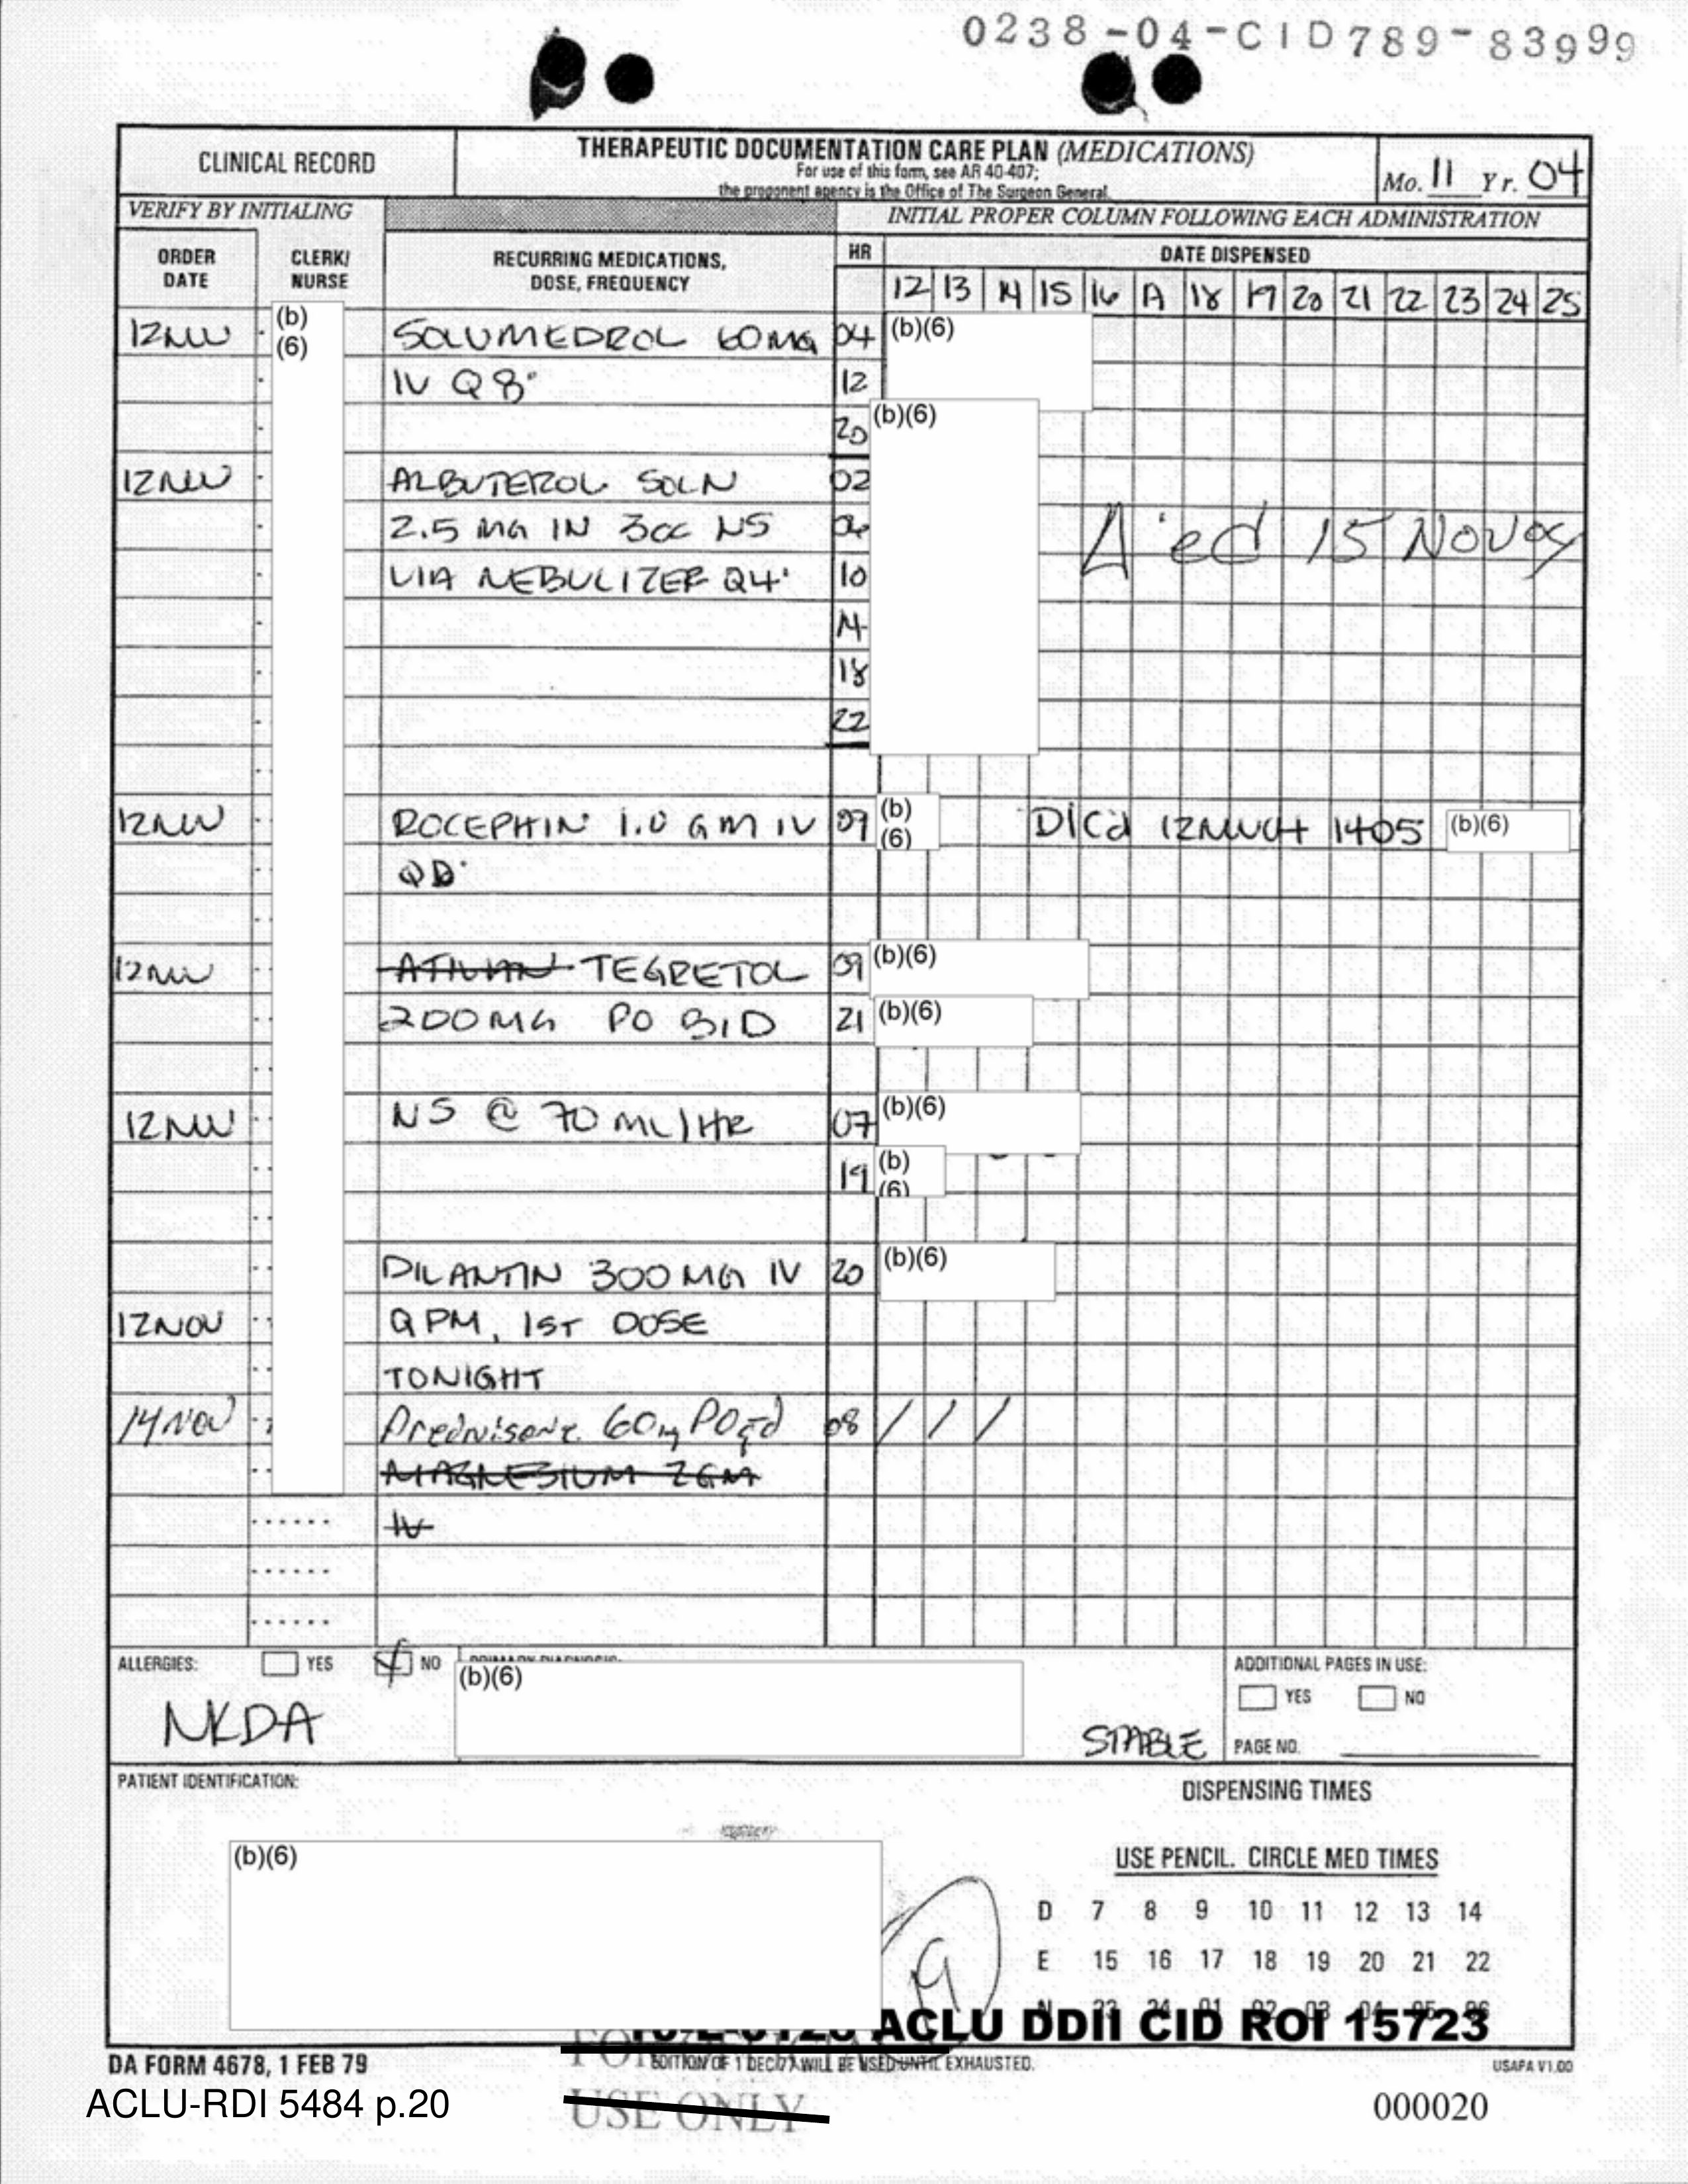 0238-04-CID789-83999
CLINICAL RECORD
THERAPEUTIC DOCUMENTATION CARE PLAN (MEDICATIONS)
For use of this form, see AR 40-407;
the proponent agency is the Office of The Surgeon General.
Mo. 11 Yr. 04
VERIFY BY INITIALING
INITIAL PROPER COLUMN FOLLOWING EACH ADMINISTRATION
ORDER DATE
CLERK/ NURSE
RECURRING MEDICATIONS, DOSE, FREQUENCY
HR
DATE DISPENSED
12 13 14 15 16 17 18 19 20 21 22 23 24 25
12NOV (b)(6) SOLUMEDROL 60MG 04 (b)(6)
IV Q8° 12
20 (b)(6)
12NOV ALBUTEROL SOLN 02
2.5 MG IN 3CC NS 06
VIA NEBULIZER Q4° 10
14
18
22
15 NOV 04
12NOV ROCEPHIN 1.0 GM IV 09 (b)(6) D/Cd 12NOV04 1405 (b)(6)
QD
12NOV ATIVAN TEGRETOL 09 (b)(6)
200MG PO BID 21 (b)(6)
12NOV NS @ 70 ML/HR 07 (b)(6)
19 (b)(6)
DILANTIN 300 MG IV 20 (b)(6)
12NOV QPM, 1ST DOSE
TONIGHT
14 NOV Prednisone 60mg PO qd 08 / / /
MAGNESIUM 2GM
IV
ALLERGIES: YES NO
PRIMARY DIAGNOSIS:
(b)(6)
NKDA
STABLE
ADDITIONAL PAGES IN USE:
YES NO
PAGE NO.
PATIENT IDENTIFICATION:
(b)(6)
DISPENSING TIMES
USE PENCIL. CIRCLE MED TIMES
D 7 8 9 10 11 12 13 14
E 15 16 17 18 19 20 21 22
N 23 24 01 02 03 04 05 06
ACLU DDII CID ROI 15723
DA FORM 4678, 1 FEB 79
EDITION OF 1 DEC 77 WILL BE USED UNTIL EXHAUSTED.
USAPA V1.00
ACLU-RDI 5484 p.20
USE ONLY
000020